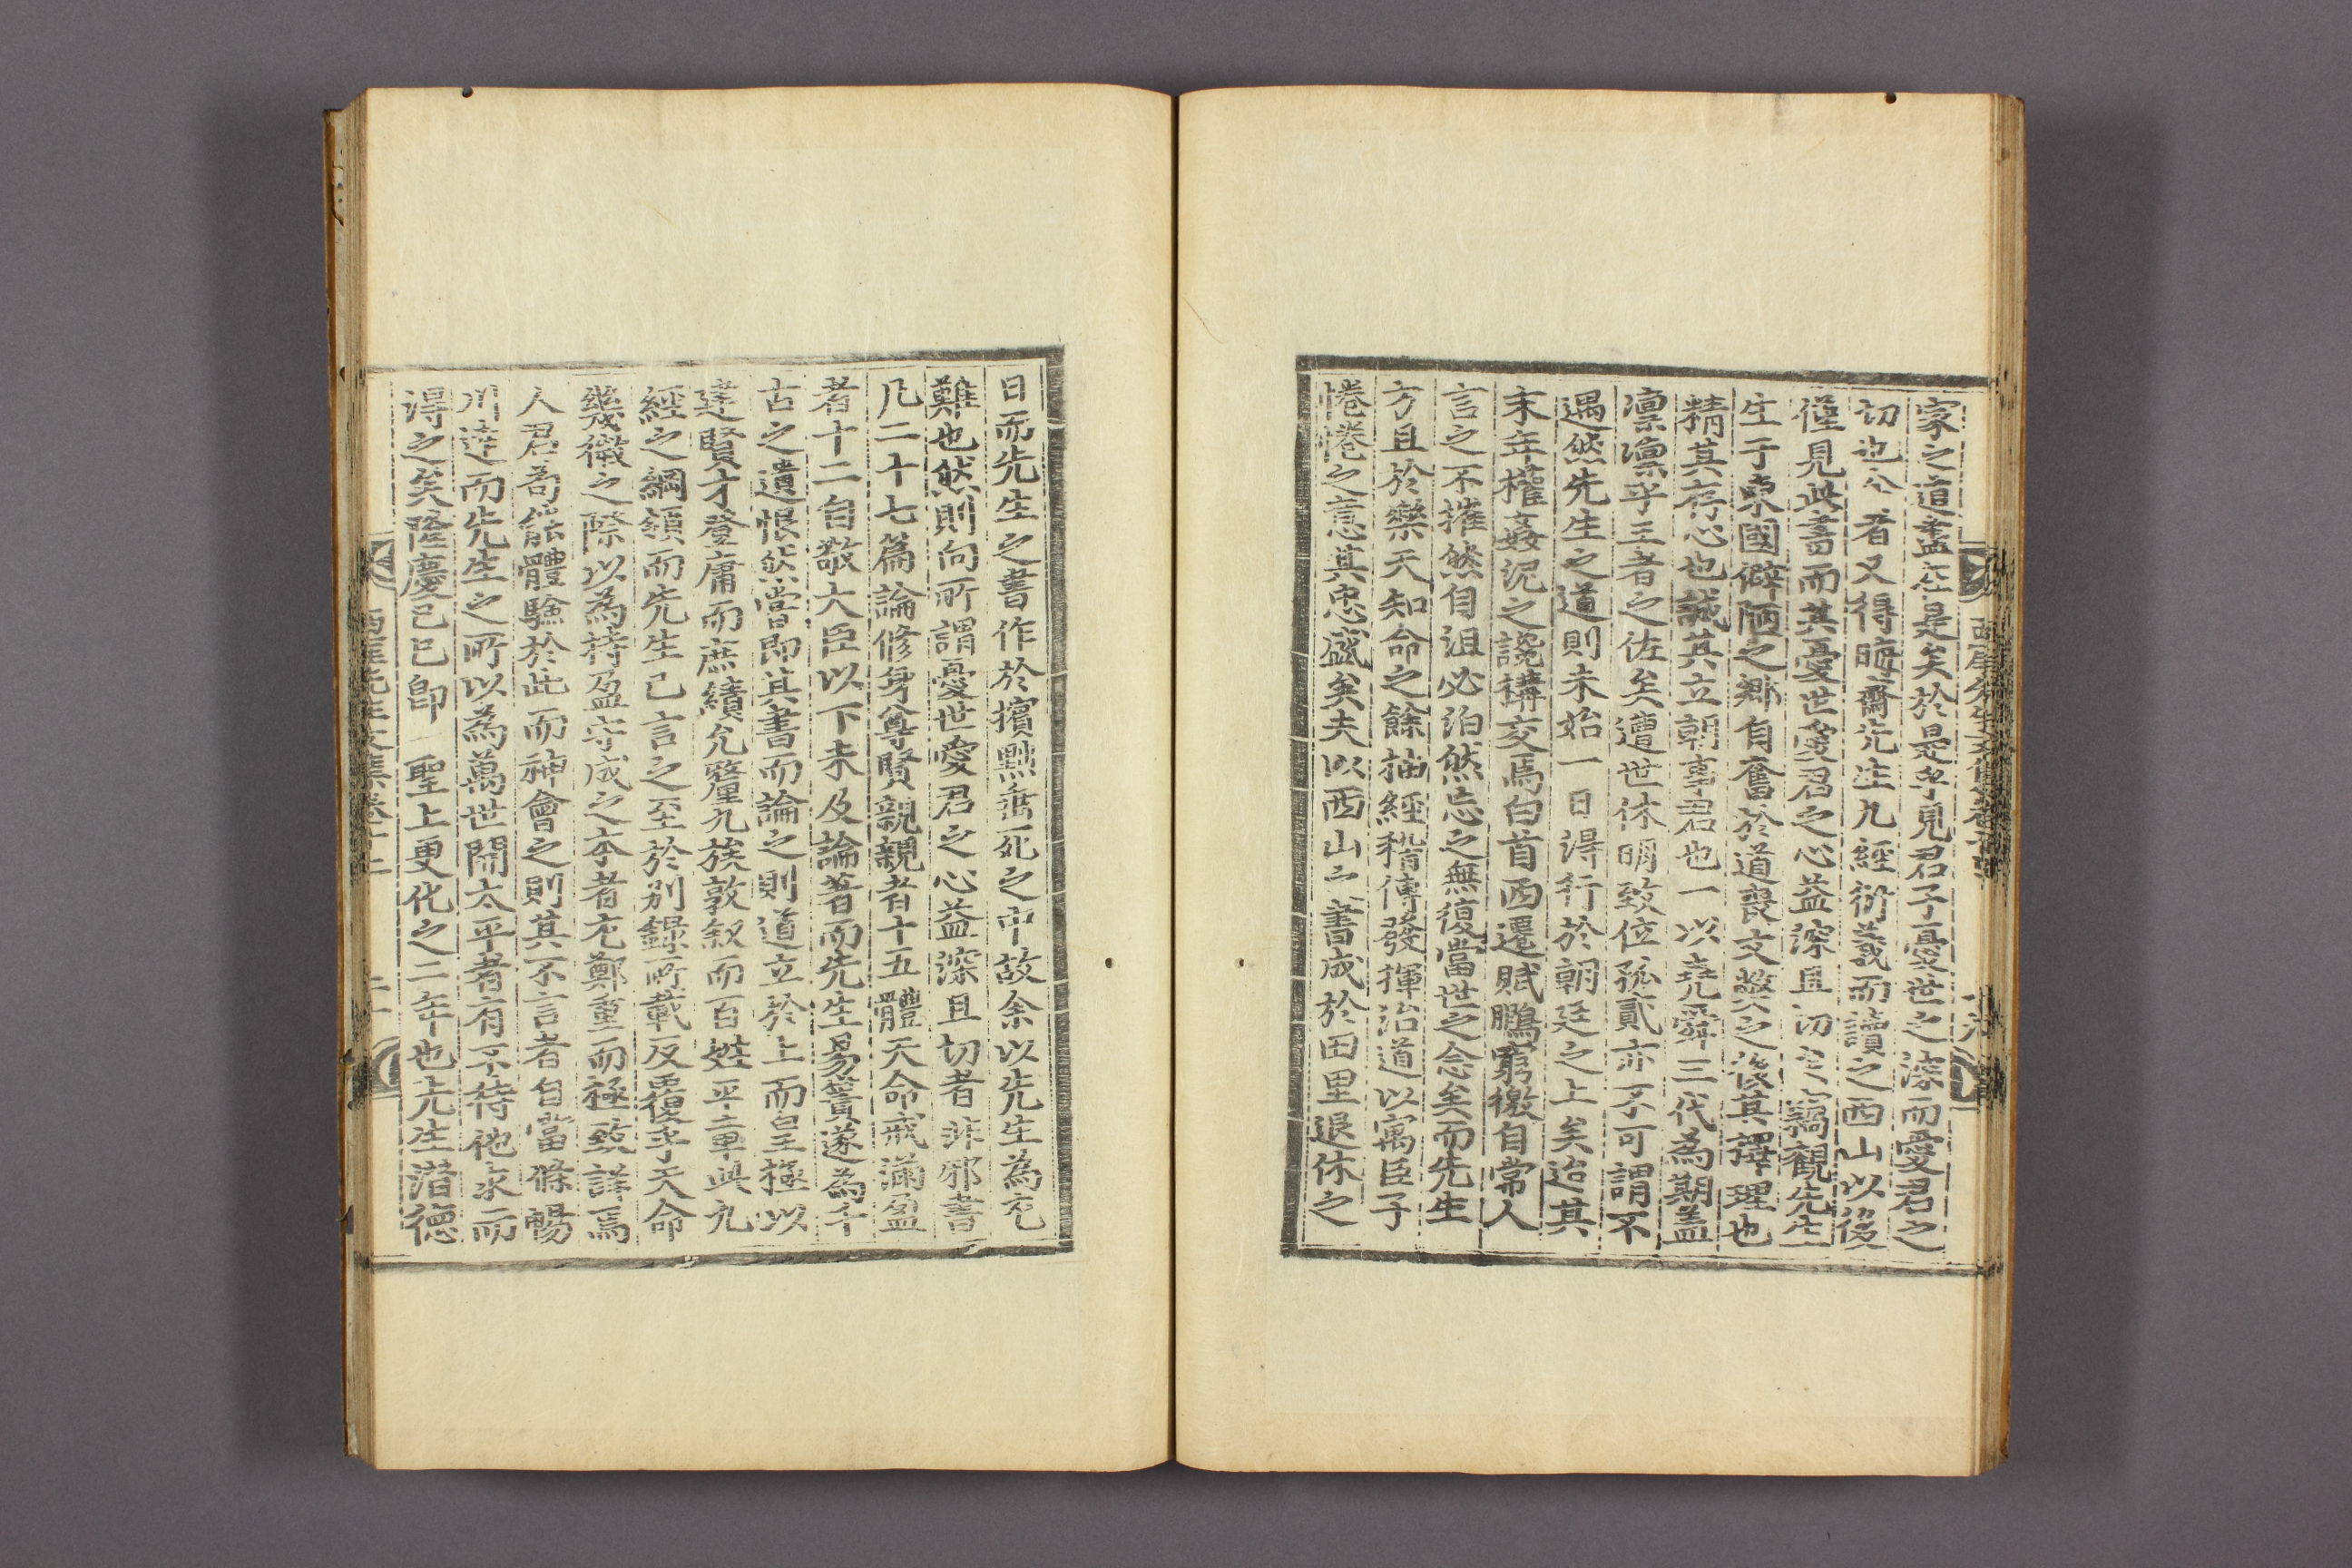 家之道盡在是矣於是乎見君子憂世之深而愛君之
切也今者又得晦齋先生九經衍義而讀之西山以後
僅見此書而其憂世愛君之心益深且切也竊觀先生
生于東國僻陋之鄉自奮於道喪文弊之後其擇理也
精其存心也誠其立朝事君也一以堯舜三代為期盖
凛凛乎王者之佐矣遭世休明致位孤貳亦不可謂不
遇然先生之道則未始一日得行於朝廷之上矣迨其
末年權姦泥之讒搆交焉白首西遷賦鵩窮檄自常人
言之不摧然自沮必泊然忘之無復當世之念矣而先生
方且於樂天知命之餘抽經稽傳發揮治道以寓臣子
惓惓之意其忠盛矣夫以西山之書成於田里退休之
日而先生之書作於擯黜垂死之中故余以先生為尤
難也然則向所謂憂世愛君之心益深且切者非邪書
凡二十七篇論修身尊賢親親者十五體天命戒滿盈
者十二自敬大臣以下未及論著而先生易簀遂為千
古之遺恨然嘗即其書而論之則道立於上而皇極以
建賢才登庸而庶績允釐九族敦叙而百姓平章與九
經之綱領而先生已言之至於别錄所載反覆乎天命
幾微之際以為持盈守成之本者尤鄭重而極致詳焉
人君苟能體驗於此而神會之則其不言者自當條暢
川達而先生之所以為萬世開太平者有不待他求而
得之矣隆慶己巳卽 聖上更化之二年也先生潜德
西厓先生文集卷十二